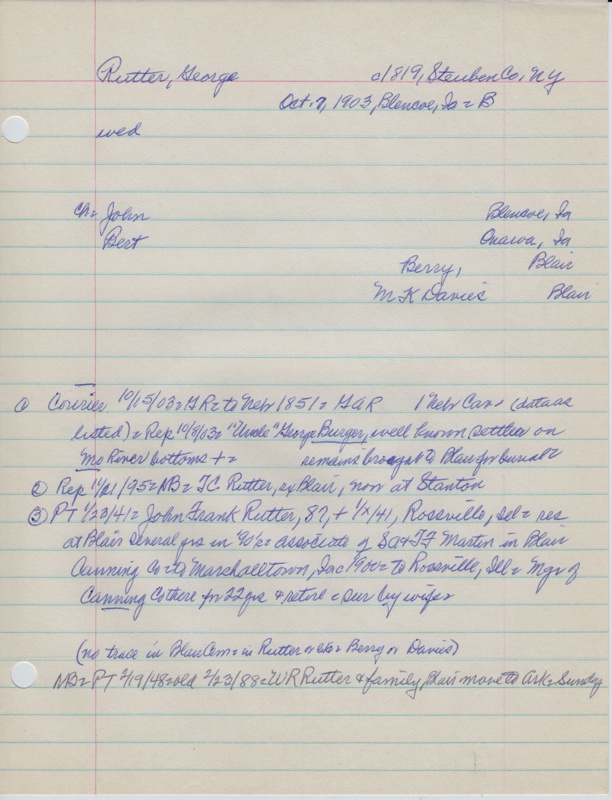 Rutter, George c/1819, Steuben Co, NY
Oct. 7, 1903, Blencoe, Ia = B
wed
ch = John Blencoe, Ia
Bert Onawa, Ia
Berry, Blair
M K Davies Blair
① Courier 10/15/03 = GR = to Nebr 1851 = GAR 1 Nebr Cav = (data as
listed) = Rep 10/8/03 = "Uncle" George Burger, well known settler on
Mo River bottoms + = remains brought to Blair for burial =
② Rep 11/21/95 = NB = TC Rutter, ex Blair, now at Stanton
③ PT 1/23/41 = John Frank Rutter, 82, + 1/x/41, Rossville, Ill = res
at Blair several yrs in 90's = associate of SA & TF Martin in Blair
Canning Co = to Marshalltown, Ia c 1900 = to Rossville, Ill = Mgr of
Canning Co there for 22 yrs & retired = sur by wife =
(no trace in Blair Cem = in Rutter or Berry or Davies)
NB = PT 2/19/48 = old 2/23/88 = WR Rutter & family, Blair move to Ark = Sunday